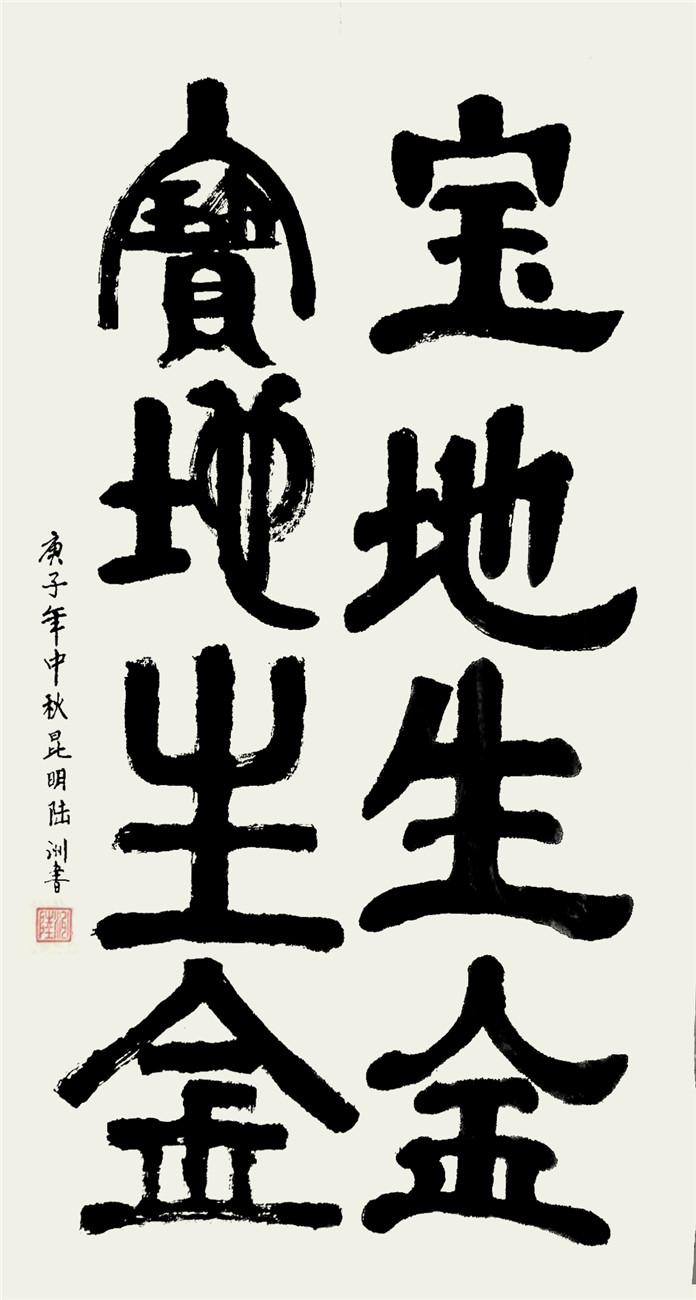 宝地生金
寶地生金
庚子年中秋昆明陆洲书